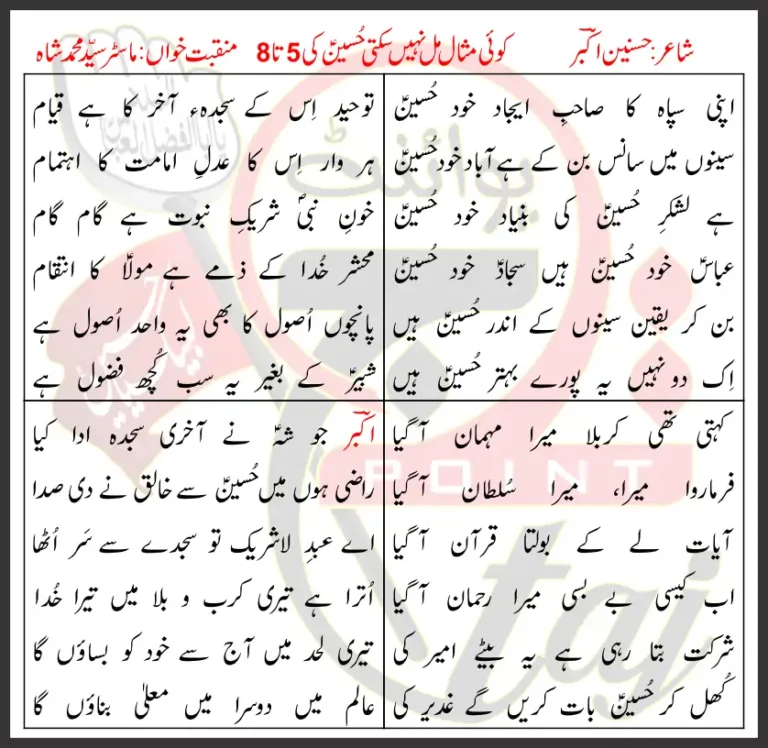 شاعر: حسنین اکبرؔ کوئی مثال مل نہیں سکتی حُسینؑ کی 5 تا 8 منقبت خواں: ماسٹر سیّد محمد شاہ
اپنی سپاہ کا صاحبِ ایجاد خود حُسینؑ
سینوں میں سانس بن کے ہے آباد خود حُسینؑ
ہے لشکرِ حُسینؑ کی بنیاد خود حُسینؑ
عباسؑ خود حُسینؑ ہیں سجادؑ خود حُسینؑ
بن کر یقین سینوں کے اندر حُسینؑ ہیں
اِک دو نہیں یہ پورے بہتر حُسینؑ ہیں
توحید اِس کے سجدہء آخر کا ہے قیام
ہر وار اِس کا عدلِ امامت کا اہتمام
خونِ نبیؐ شریکِ نبوت ہے گام گام
محشر خُدا کے ذمے ہے مولاؑ کا انتقام
پانچوں اُصول کا بھی یہ واحد اُصول ہے
شبیرؑ کے بغیر یہ سب کُچھ فضول ہے
کہتی تھی کربلا میرا مہمان آ گیا
فرماروا میرا، میرا سُلطان آ گیا
آیات لے کے بولتا قرآن آ گیا
اب کیسی بے بسی میرا رحمان آ گیا
شرکت بتا رہی ہے یہ بیٹے امیر کی
کُھل کر حُسینؑ بات کریں گے غدیر کی
اکبرؔ جو شہؑ نے آخری سجدہ ادا کیا
راضی ہوں میں حُسینؑ سے خالق نے دی صدا
اے عبدِ لاشریک تو سجدے سے سَر اُٹھا
اُترا ہے تیری کرب و بلا میں تیرا خُدا
تیری لحد میں آج سے خود کو بساؤں گا
عالم میں دوسرا میں معلیٰ بناؤں گا
پوائنٹ
POINT
taj